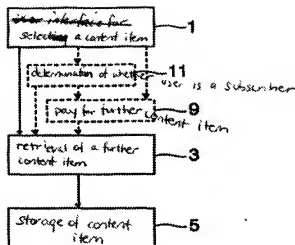 user interface for
selecting a content item
1
11
determination of whether
user is a subscriber
9
pay for further
content item
retrieval of a further
content item
3
storage of content
item
5